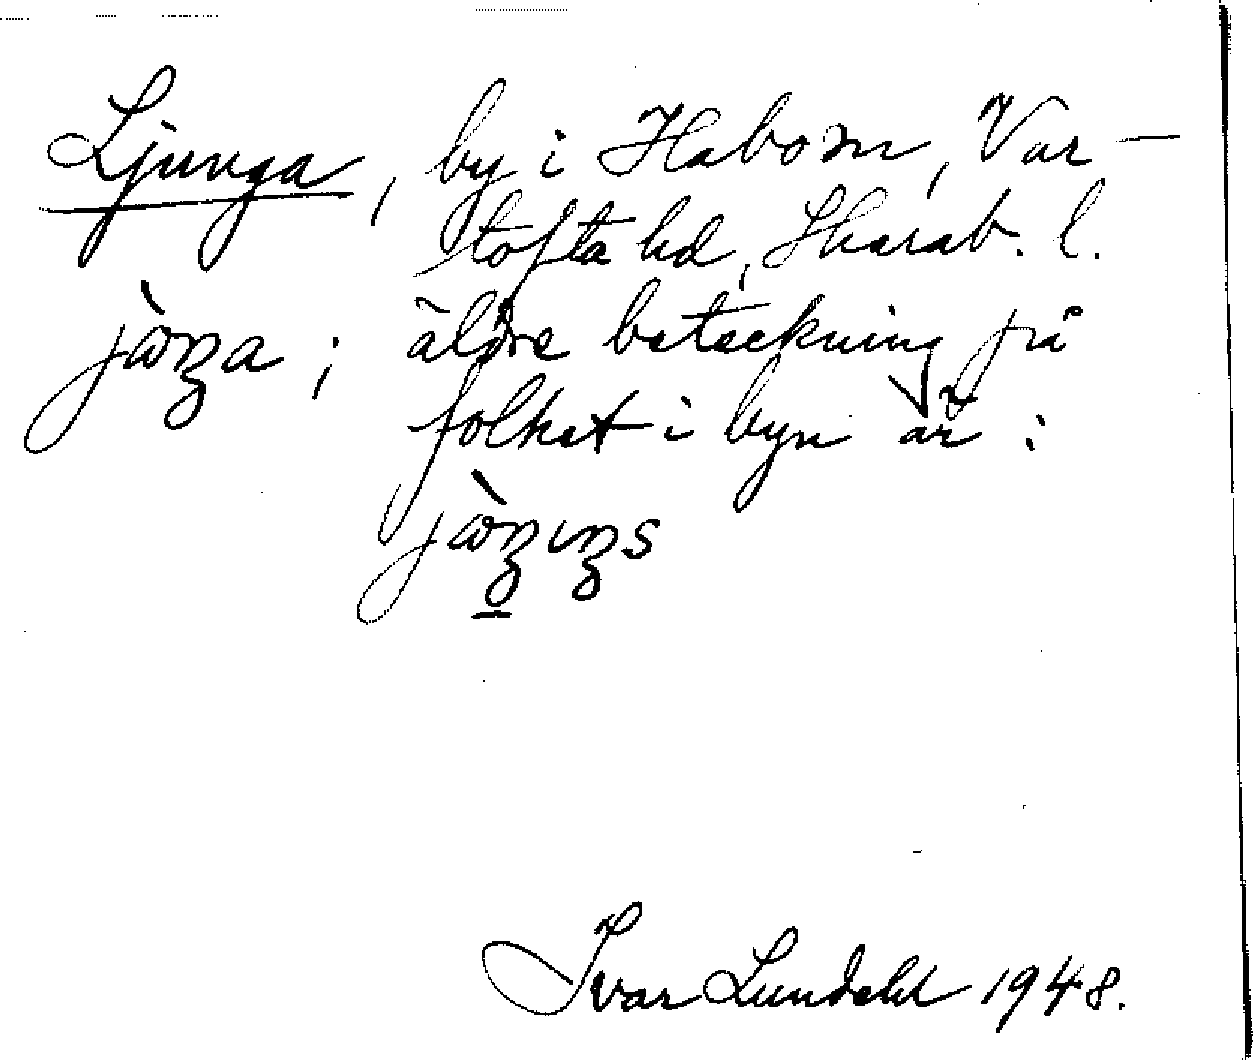 Ljunga, by i Habo sn, Var-
tofta hd, Skarab. l.
jòŋa; äldre beteckning på
folket i byn är:
jòŋɩŋs
Ivar Lundahl 1948.